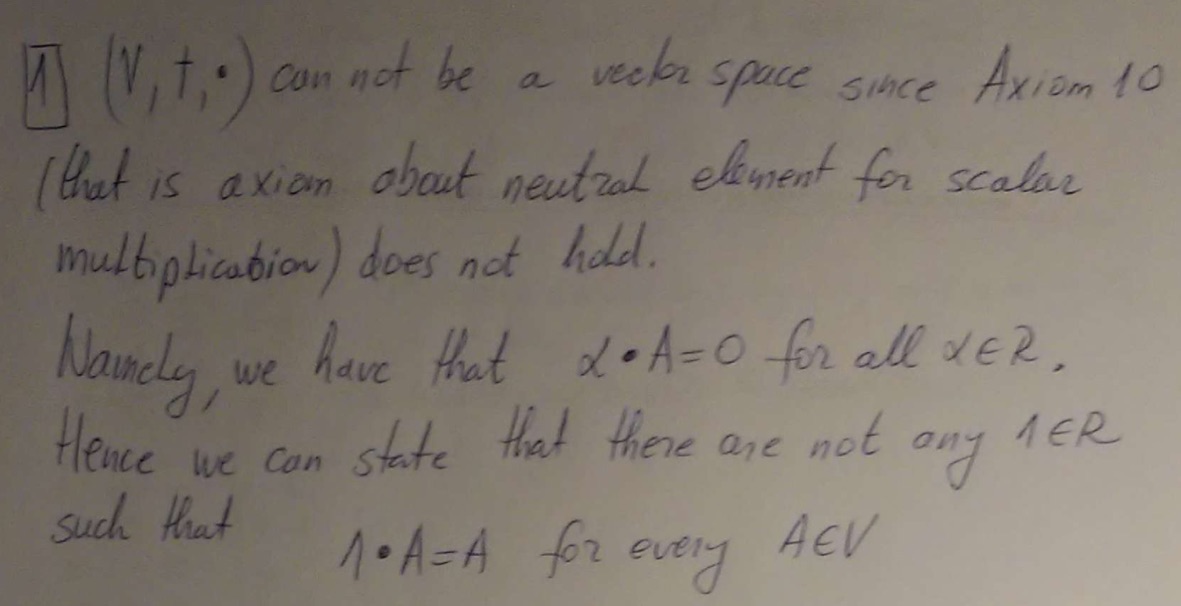 1 (V, +, •) can not be a vector space since Axiom 10
(that is axiom about neutral element for scalar
multiplication) does not hold.
Namely, we have that α • A = 0 for all α ∈ R.
Hence we can state that there are not any 1 ∈ R
such that
1 • A = A for every A ∈ V